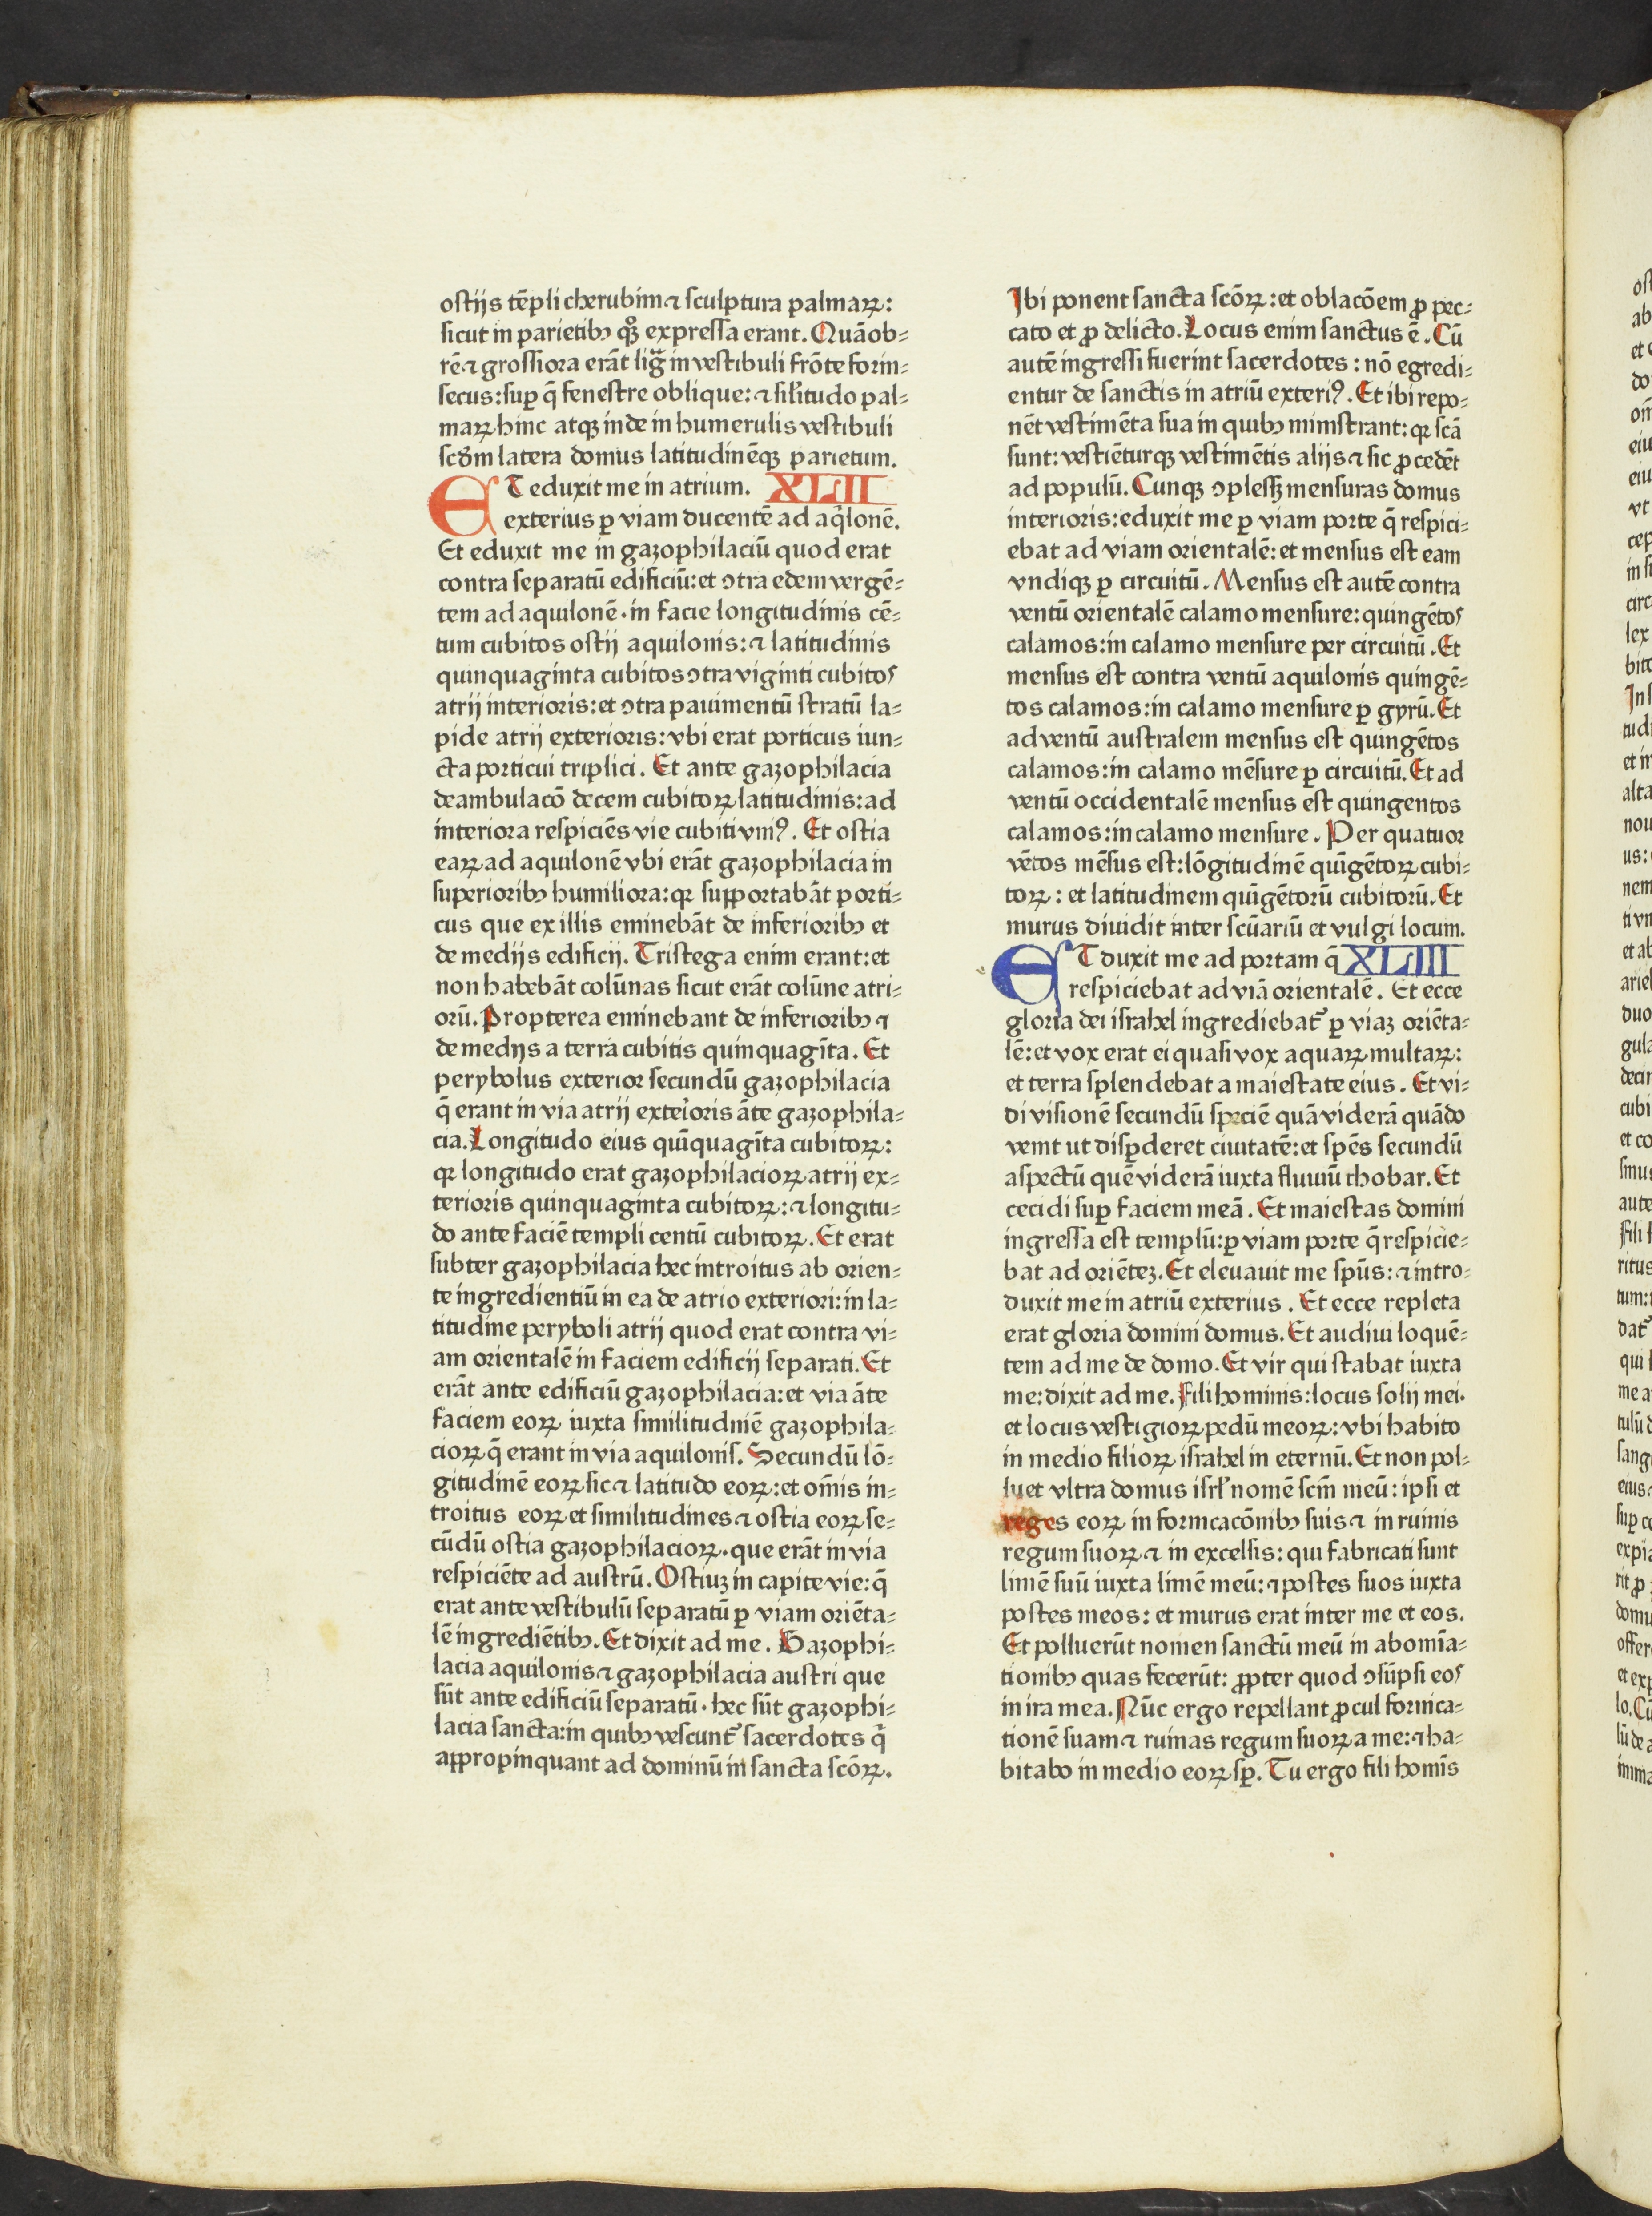 ostijs tēpli cherubim ⁊ sculptura palmaꝝ:
sicut in parietibꝫ qͦꝫ expressa erant. Quāob⸗
rē ⁊ grossiora erāt lig̃ in vestibuli frōte forin⸗
secus: suꝑ q̄ fenestre oblique: ⁊ sil̄itudo pal⸗
maꝝ hinc atqꝫ inde in humerulis vestibuli
scd̄m latera domus latitudinēqꝫ parietum.
ET eduxit me in atrium. XLII
exterius ꝑ viam ducentē ad aq̇lonē.
Et eduxit me in gazophilaciū quod erat
contra separatū edificiū: et ↄtra edem vergē⸗
tem ad aquilonē. in facie longitudinis cē⸗
tum cubitos ostij aquilonis: ⁊ latitudinis
quinquaginta cubitos ↄtra viginti cubitos
atrij interioris: et ↄtra pauimentū stratū la⸗
pide atrij exterioris: vbi erat porticus iun⸗
cta porticui triplici. Et ante gazophilacia
deambulacō decem cubitoꝝ latitudinis: ad
interiora respiciēs vie cubiti vniꝰ. Et ostia
eaꝝ ad aquilonē vbi erāt gazophilacia in
superioribꝫ humiliora: qꝛ supportabāt porti⸗
cus que ex illis eminebāt de inferioribꝫ et
de medijs edificij. Tristega enim erant: et
non habebāt colūnas sicut erāt colūne atri⸗
orū. Propterea eminebant de inferioribꝫ ⁊
de medijs a terra cubitis quinquagīta. Et
perybolus exterior secundū gazophilacia
q̄ erant in via atrij exterioris āte gazophila⸗
cia. Longitudo eius quīquagīta cubitoꝝ:
qꝛ longitudo erat gazophilacioꝝ atrij ex⸗
terioris quinquaginta cubitoꝝ: ⁊ longitu⸗
do ante faciē templi centū cubitoꝝ. Et erat
subter gazophilacia hec introitus ab orien⸗
te ingredientiū in ea de atrio exteriori: in la⸗
titudine peryboli atrij quod erat contra vi⸗
am orientalē in faciem edificij separati. Et
erāt ante edificiū gazophilacia: et via āte
faciem eoꝝ iuxta similitudinē gazophila⸗
cioꝝ q̄ erant in via aquilonis. Secundū lō⸗
gitudinē eoꝝ sic ⁊ latitudo eoꝝ: et om̄is in⸗
troitus eoꝝ et similitudines ⁊ ostia eoꝝ se⸗
cūdū ostia gazophilacioꝝ. que erāt in via
respiciēte ad austrū. Ostiuꝫ in capite vie: q̄
erat ante vestibulū separatū ꝑ viam oriēta⸗
lē ingrediētibꝫ. Et dixit ad me. Gazophi⸗
lacia aquilonis ⁊ gazophilacia austri que
sūt ante edificiū separatū. hec sūt gazophi⸗
lacia sancta: in quibꝫ vescunt᷑ sacerdotes q̇
appropinquant ad dominū in sancta scōꝝ.
Ibi ponent sancta scōꝝ: et oblacōem ꝓ pec⸗
cato et ꝓ delicto. Locus enim sanctus ē. Cū
autē ingressi fuerint sacerdotes: nō egredi⸗
entur de sanctis in atriū exteriꝰ. Et ibi repo⸗
nēt vestimēta sua in quibꝫ ministrant: qꝛ scā
sunt: vestiēturqꝫ vestimētis alijs ⁊ sic ꝓcedēt
ad populū. Cunqꝫ ↄplesꝫ mensuras domus
interioris: eduxit me ꝑ viam porte q̄ respici⸗
ebat ad viam orientalē: et mensus est eam
vndiqꝫ ꝑ circuitū. Mensus est autē contra
ventū orientalē calamo mensure: quingētos
calamos: in calamo mensure per circuitū. Et
mensus est contra ventū aquilonis quingē⸗
tos calamos: in calamo mensure ꝑ gyrū. Et
ad ventū australem mensus est quingētos
calamos: in calamo mēsure ꝑ circuitū. Et ad
ventū occidentalē mensus est quingentos
calamos: in calamo mensure. Per quatuor
vētos mēsus est: lōgitudinē quīgētoꝝ cubi⸗
toꝝ: et latitudinem quīgētorū cubitorū. Et
murus diuidit inter scūariū et vulgi locum.
ET duxit me ad portam q̄ XLIII
respiciebat ad viā orientalē. Et ecce
gloria dei israhel ingrediebat᷑ ꝑ viaꝫ oriēta⸗
lē: et vox erat ei quasi vox aquaꝝ multaꝝ:
et terra splendebat a maiestate eius. Et vi⸗
di visionē secundū speciē quā viderā quādo
venit ut disꝑderet ciuitatē: et spēs secundū
aspectū quē viderā iuxta fluuiū chobar. Et
cecidi suꝑ faciem meā. Et maiestas domini
ingressa est templū: ꝑ viam porte q̄ respicie⸗
bat ad oriēteꝫ. Et eleuauit me spūs: ⁊ intro⸗
duxit me in atriū exterius. Et ecce repleta
erat gloria domini domus. Et audiui loquē⸗
tem ad me de domo. Et vir qui stabat iuxta
me: dixit ad me. Fili hominis: locus solij mei.
et locus vestigioꝝ pedū meoꝝ: vbi habito
in medio filioꝝ israhel in eternū. Et non pol⸗
luet vltra domus isrl̄ nomē scm̄ meū: ipsi et
reges eoꝝ in fornicacōnibꝫ suis ⁊ in ruinis
regum suoꝝ ⁊ in excelsis: qui fabricati sunt
limē suū iuxta limē meū: ⁊ postes suos iuxta
postes meos: et murus erat inter me et eos.
Et polluerūt nomen sanctū meū in abomīa⸗
tionibꝫ quas fecerūt: ꝓpter quod ↄsūpsi eos
in ira mea. Nūc ergo repellant ꝓcul fornica⸗
tionē suam ⁊ ruinas regum suoꝝ a me: ⁊ ha⸗
bitabo in medio eoꝝ sꝑ. Tu ergo fili homīs